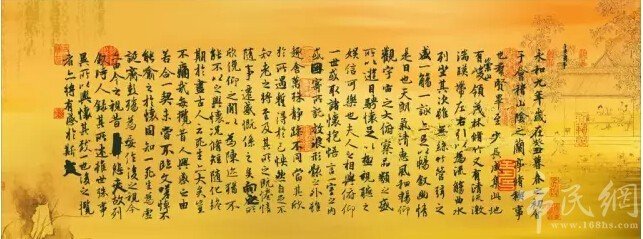 永和九年歲在癸丑暮春之初會
于會稽山陰之蘭亭脩稧事
也羣賢畢至少長咸集此地
有崇山峻領茂林脩竹又有清流激
湍暎帶左右引以為流觴曲水
列坐其次雖無絲竹管弦之
盛一觴一詠亦足以暢叙幽情
是日也天朗氣清惠風和暢仰
觀宇宙之大俯察品類之盛
所以遊目騁懷足以極視聽之
娛信可樂也夫人之相與俯仰
一世或取諸懷抱悟言一室之內
或因寄所託放浪形骸之外雖
趣舍萬殊靜躁不同當其欣
於所遇蹔得於己怏然自足不
知老之將至及其所之既惓情
隨事遷感慨係之矣向之所
欣俛仰之閒以為陳迹猶不
能不以之興懷況脩短隨化終
期於盡古人云死生亦大矣豈
不痛哉每攬昔人興感之由
若合一契未嘗不臨文嗟悼不
能喻之於懷固知一死生為虛
誕齊彭殤為妄作後之視今
亦由今之視昔悲夫故列
叙時人錄其所述雖世殊事
異所以興懷其致一也後之攬
者亦將有感於斯文
市民網
www.168hs.com